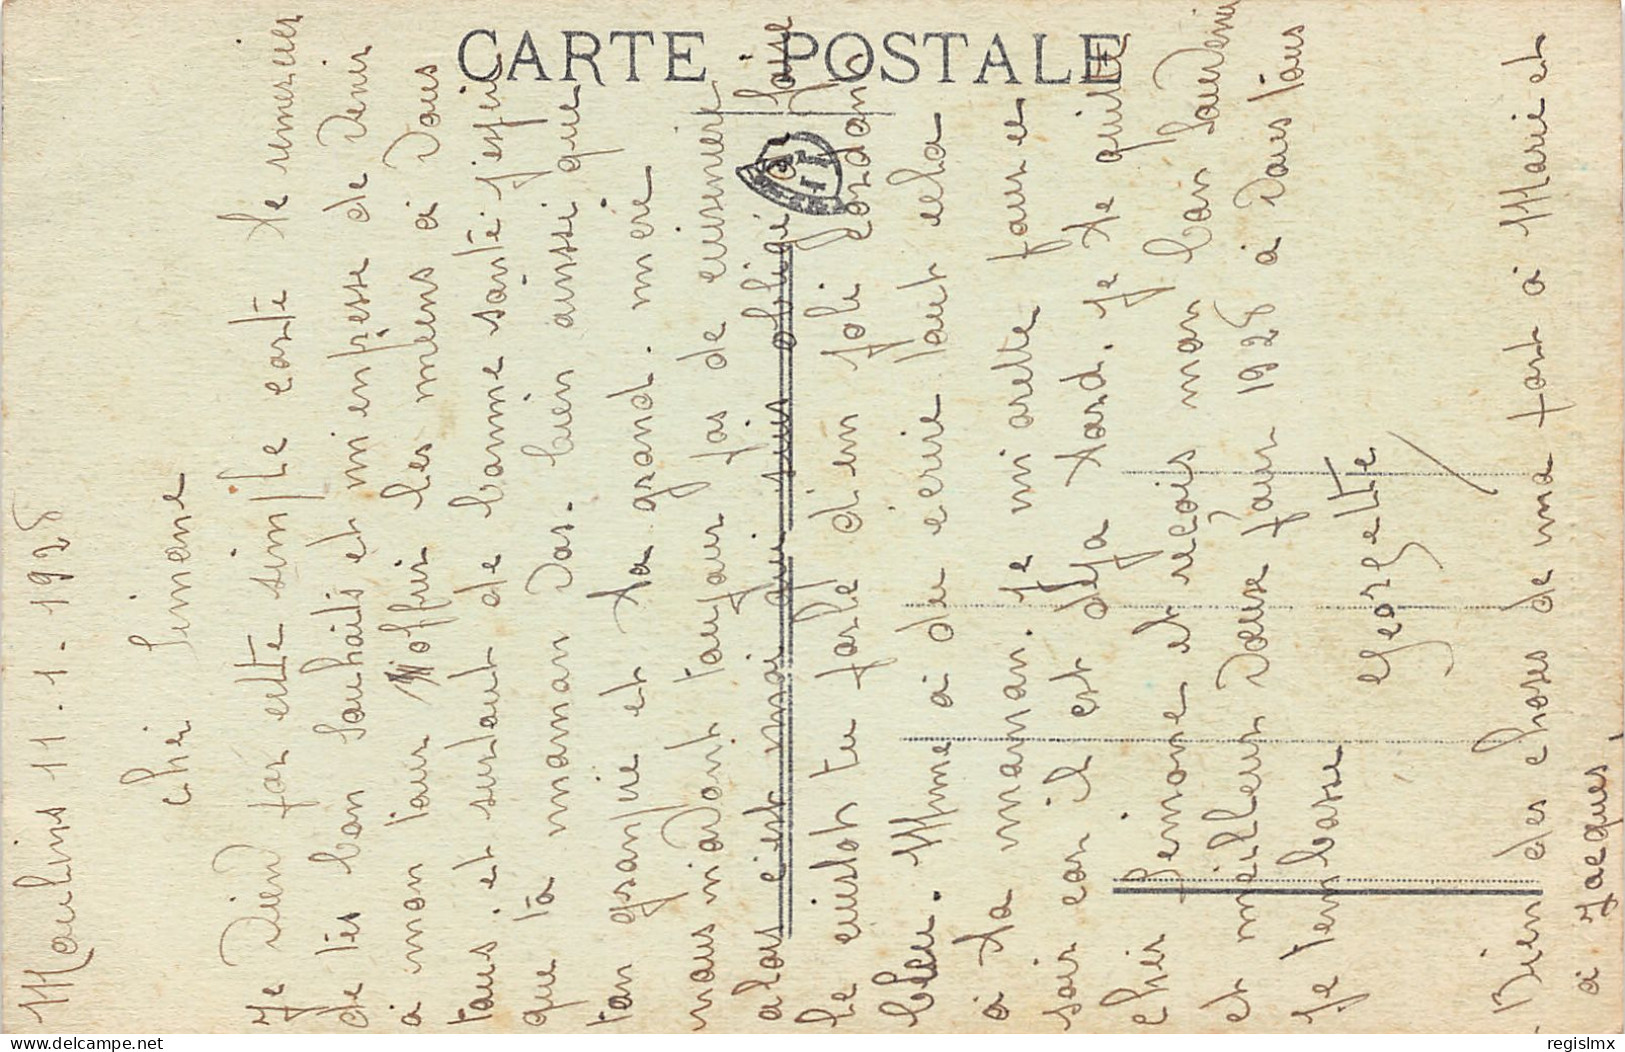 CARTE POSTALE
Moulins 11.1.1928
cher Simone
Je vien par cette simple carte te remercier
de tes bon souhaits et m'enpresse de venir
à mon tour offrir les miens à vous
tous. et surtout de bonne santé j'espère
que ta maman vas. bien ainssi que
ton granpie et ta grand. mère
nous n'avont toujour pas de cuisiniere
alors c'est moi qui suis obligé faire
le cuistot tu parle d'un joli cordon
bleu. Mme à du ecrire tout cela
à ta maman. Je m'arette pour ce
soir car il est déja tard. je te quitte
cher Semone et recois mon bon souvenir
et meilleur voeux pour 1928 à vous tous
Je t'embasse
Georgette
Bien des choses de ma part à Marie et
à Jacques,
delcampe.net
regislmx